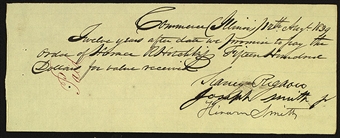 Commerce Illinois 12th Aug 1839
Twelve years after date we promise to pay the
order of Horace R Hotchkiss Fifteen Hundred
Dollars for value received
Paid
Sidney Rigdon
Joseph Smith Jr
Hiram Smith